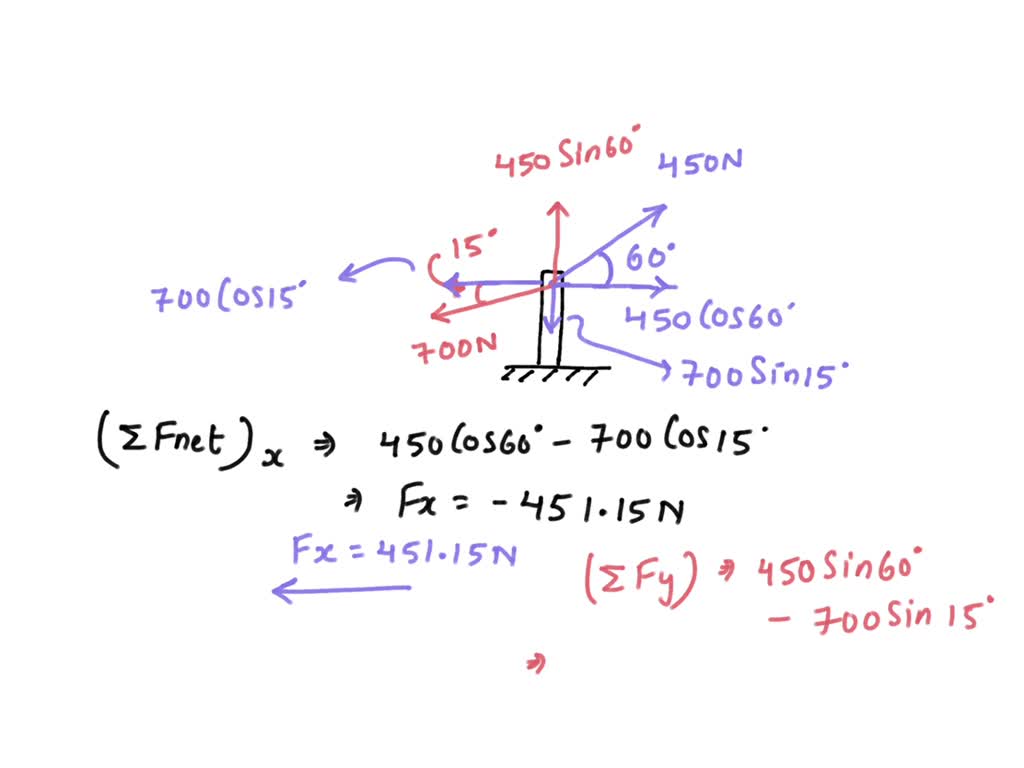 450 Sin60°
450N
15°
60°
700 Cos15°
450 Cos60°
700N
700 Sin15°
(ΣFnet)x ⇒ 450 Cos60° - 700 Cos15°
⇒ Fx = -451.15N
Fx = 451.15N
(ΣFy) ⇒ 450 Sin60°
- 700 Sin 15°
⇒